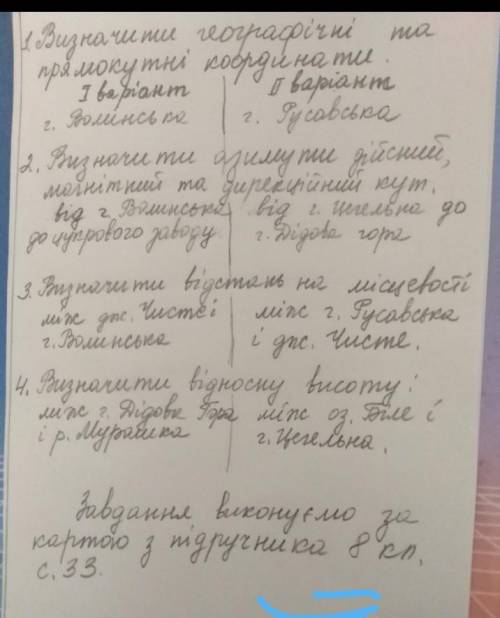 1. Визначити географічні та
прямокутні координати.
I варіант II варіант
г. Волинська г. Русавська
2. Визначити азимути дійсний,
магнітний та дирекційний кут.
від г. Волинська від г. Цегельна до
до цукрового заводу. г. Дідова гора
3. Визначити відстань на місцевості
між дж. Чисте і між г. Русавська
г. Волинська і дж. Чисте.
4. Визначити відносну висоту:
між г. Дідова Гора між оз. Біле і
і р. Мурашка г. Цегельна.
Завдання виконуємо за
картою з підручника 8 кл.
с. 33.